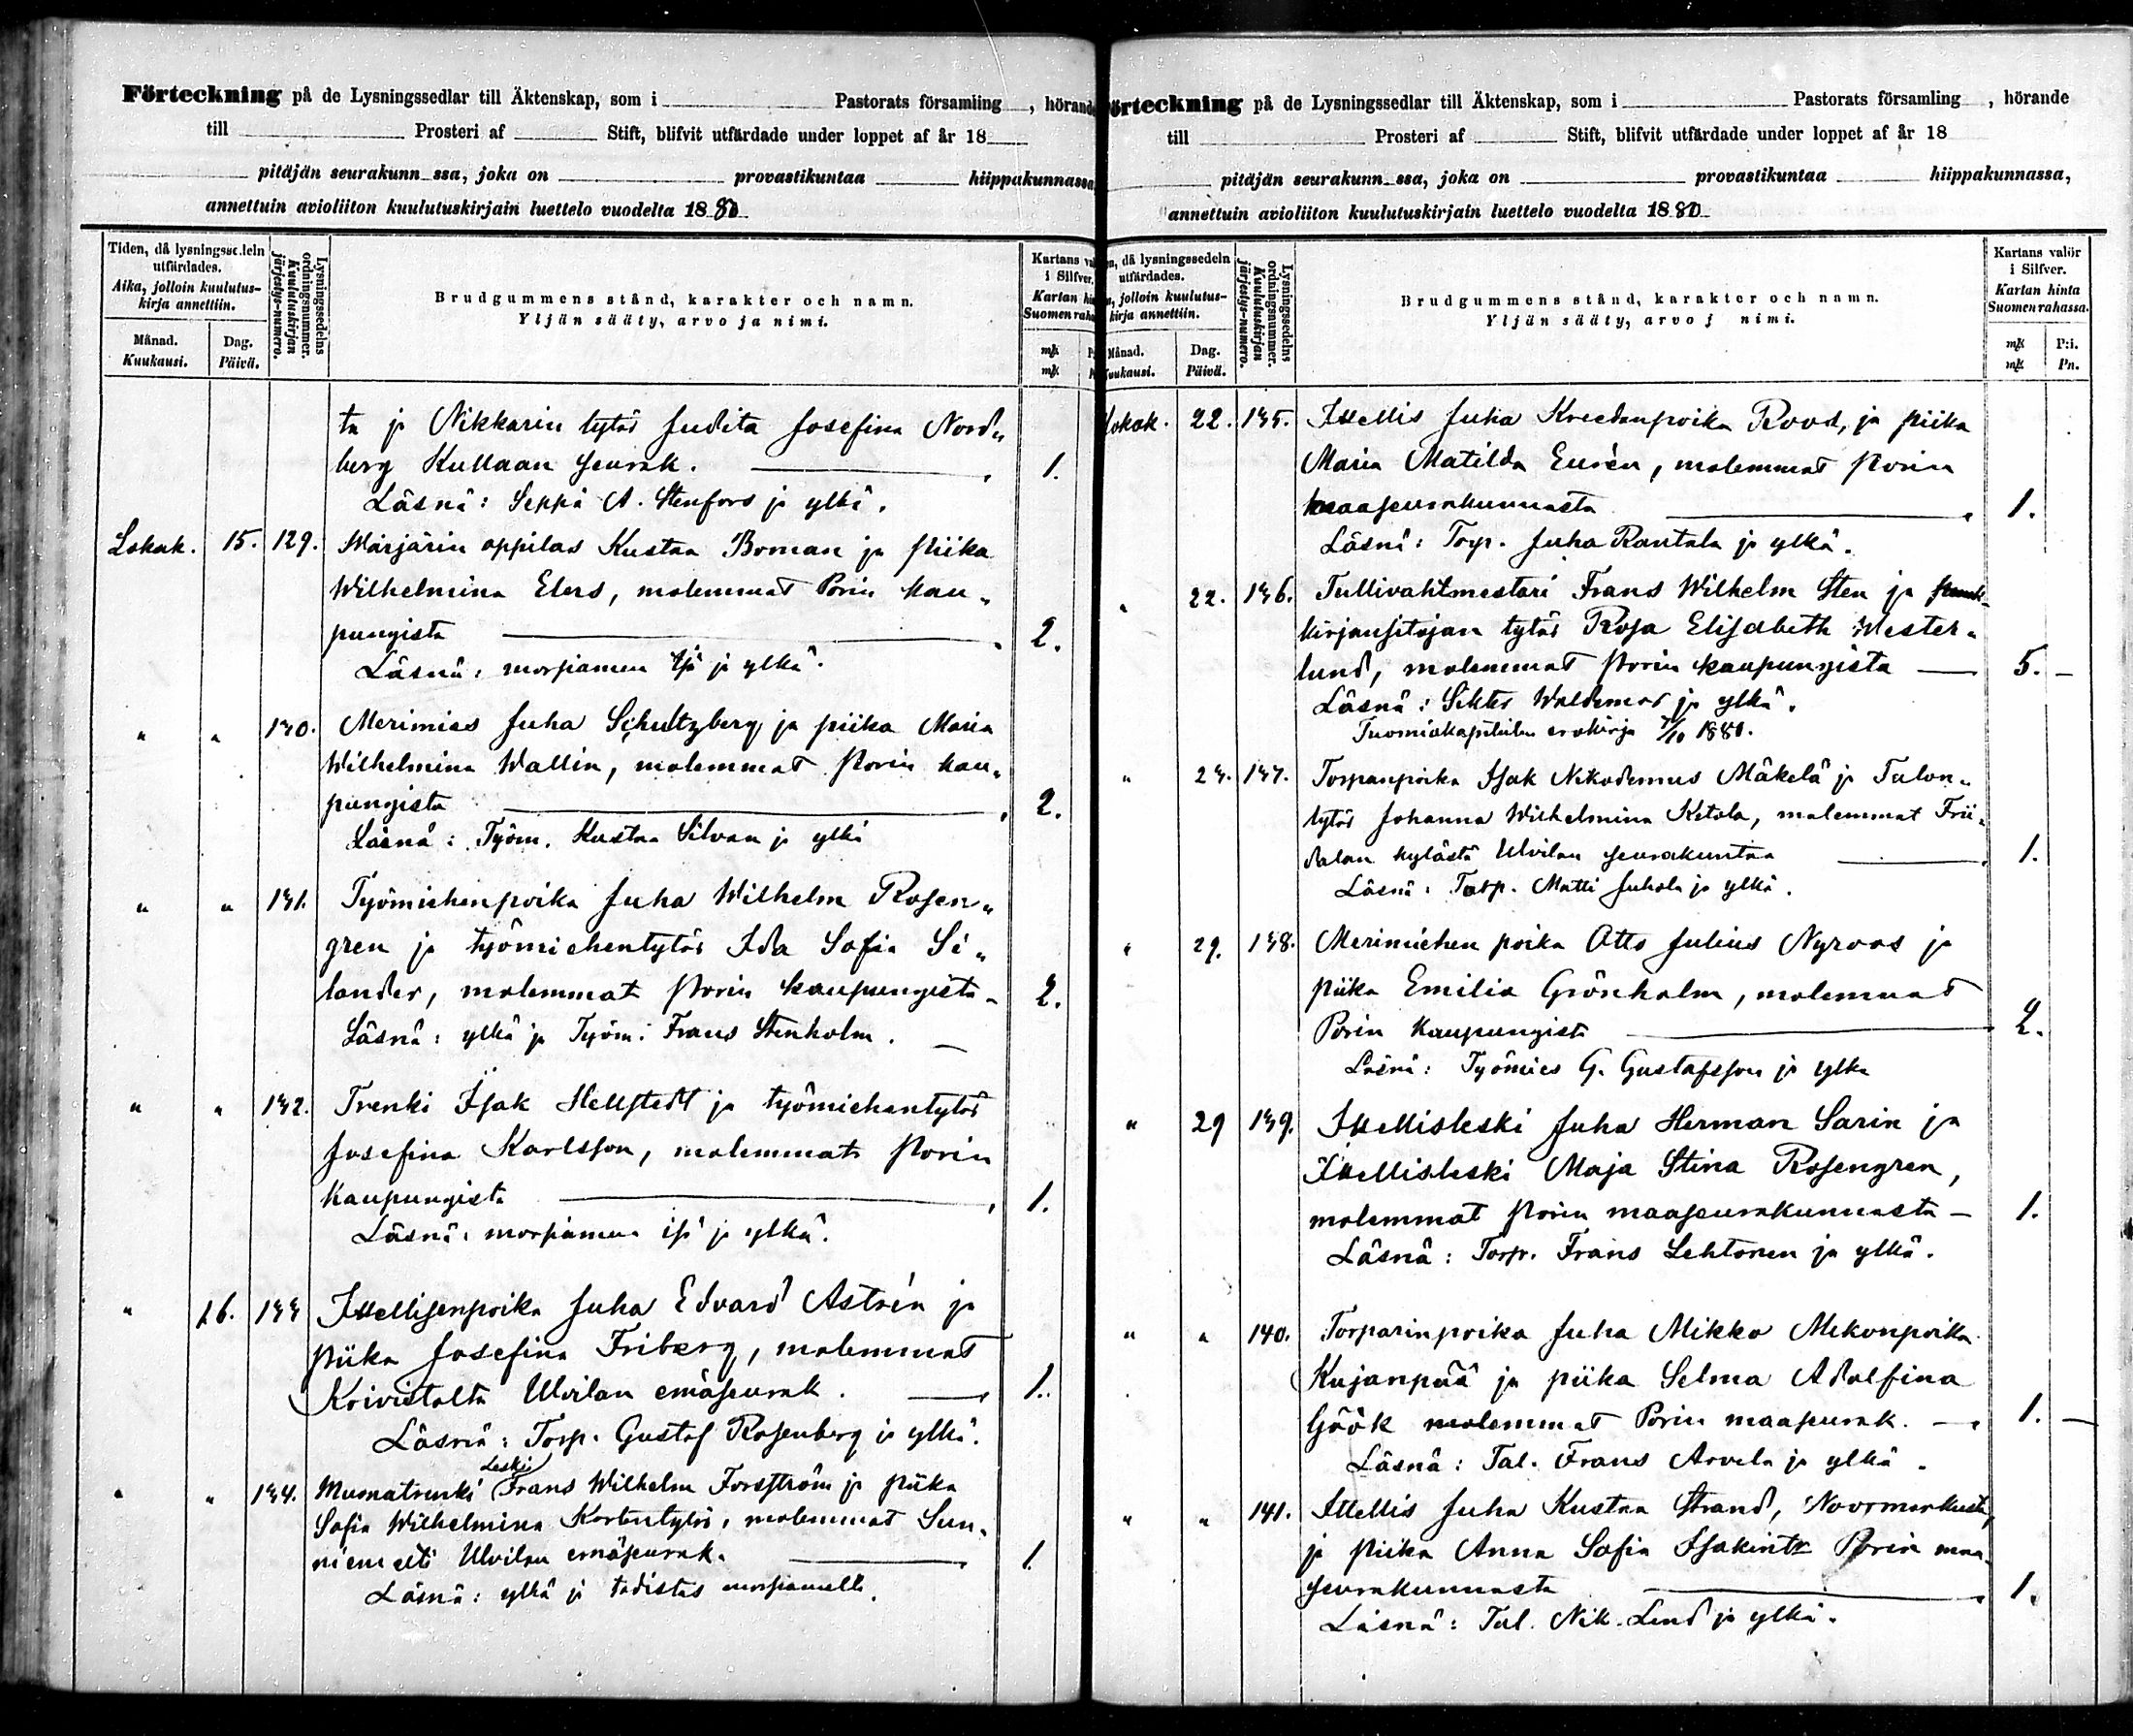 Förteckning på de Lysningssedlar till Äktenskap, som i Pastorats församling , hörande
till Prosteri af Stift, blifvit utfärdade under loppet af år 18
pitäjän seurakunn ssa, joka on provastikuntaa hiippakunnassa
annettuin avioliiton kuulutuskirjain luettelo vuodelta 1880
Tiden, då lysningssedeln utfärdades.
Aika, jolloin kuulutus-kirja annettiin.
Månad. Kuukausi.
Dag. Päivä.
Lysningssedelns ordningsnummer. Kuulutuskirjan järjestys-numero.
Brudgummens stånd, karakter och namn.
Yljän sääty, arvo ja nimi.
Kartans
i Silfver.
Kartan
Suomen
ta ja Nikkarin tytär Judita Josefina Nord„
berg Kullaan seurak. 1.
Läsnä: Seppä A. Stenfors ja ylkä.
Lokak. 15. 129. Märjärin oppilas Kustaa Boman ja Piika
Wilhelmina Elers, molemmat Porin kau„
pungista 2.
Läsnä: morsiamen isä ja ylkä.
„ „ 130. Merimies Juha Schultzberg ja piika Maria
Wilhelmina Wallin, molemmat Porin kau„
pungista 2.
Läsnä: Työm. Kustaa Silvan ja ylkä
„ „ 131. Työmiehenpoika Juha Wilhelm Rosen„
gren ja työmiehentytär Ida Sofia Si„
lander, molemmat Porin kaupungista 2.
Läsnä: ylkä ja Työm: Frans Stenholm.
„ „ 132. Trenki Isak Hellstedt ja työmiehentytär
Josefina Karlsson, molemmat Porin
kaupungista 1.
Läsnä: morsiamen isä ja ylkä.
„ 16. 133 Itsellisenpoika Juha Edvard Astrén ja
piika Josefina Friberg, molemmat
Koivistolta Ulvilan emäseurak. 1.
Läsnä: Torp. Gustaf Rosenberg ja ylkä.
Leski
„ „ 134. Muonatrenki Frans Wilhelm Forsström ja piika
Sofia Wilhelmina Kortentytär, molemmat Sun„
niemelti Ulvilan emäseurak. 1.
Läsnä: ylkä ja todistus morsiamelle.
Förteckning på de Lysningssedlar till Äktenskap, som i Pastorats församling , hörande
till Prosteri af Stift, blifvit utfärdade under loppet af år 18
pitäjän seurakunn ssa, joka on provastikuntaa hiippakunnassa,
annettuin avioliiton kuulutuskirjain luettelo vuodelta 1880
då lysningssedeln utfärdades.
jolloin kuulutus-kirja annettiin.
Månad. Kuukausi.
Dag. Päivä.
Lysningssedelns ordningsnummer. Kuulutuskirjan järjestys-numero.
Brudgummens stånd, karakter och namn.
Yljän sääty, arvo j nimi.
Kartans valör
i Silfver.
Kartan hinta
Suomen rahassa.
mk P:i.
mk Pn.
Lokak. 22. 135. Itsellis Juha Kreedanpoika Rood, ja piika
Maria Matilda Eurén, molemmat Porin
maaseurakunnasta 1.
Läsnä: Torp. Juha Rantala ja ylkä.
„ 22. 136. Tullivahtmestari Frans Wilhelm Sten ja
kirjansitojan tytär Rosa Elisabeth Wester„
lund, molemmat Porin kaupungista 5.
Läsnä: Waldemar ja ylkä.
Tuomiokapitulin erokirja 7/10 1880.
„ 23. 137. Torpanpoika Isak Nikodemus Mäkelä ja Talon„
tytär Johanna Wilhelmina Ketola, molemmat Frii„
dalan kylästä Ulvilan seurakuntaa 1.
Läsnä: Torp. Matti Juhola ja ylkä.
„ 29. 138. Merimiehen poika Otto Julius Nyroos ja
piika Emilia Grönholm, molemmat
Porin Kaupungista 2.
Läsnä: Työmies G. Gustafsson ja ylkä
„ 29 139. Itsellisleski Juha Herman Sarin ja
Itsellisleski Maja Stina Rosengren,
molemmat Porin maaseurakunnasta 1.
Läsnä: Torp. Frans Lehtonen ja ylkä.
„ „ 140. Torparinpoika Juha Mikko Mikonpoika
Kujanpää ja piika Selma Adolfina
Göök molemmat Porin maaseurak. 1.
Läsnä: Tal. Frans Arvela ja ylkä.
„ „ 141. Itsellis Juha Kustaa Strand, Noormarkusta,
ja piika Anna Sofia Isakintr Porin maa„
seurakunnasta 1.
Läsnä: Tal. Nik. Lind ja ylkä.